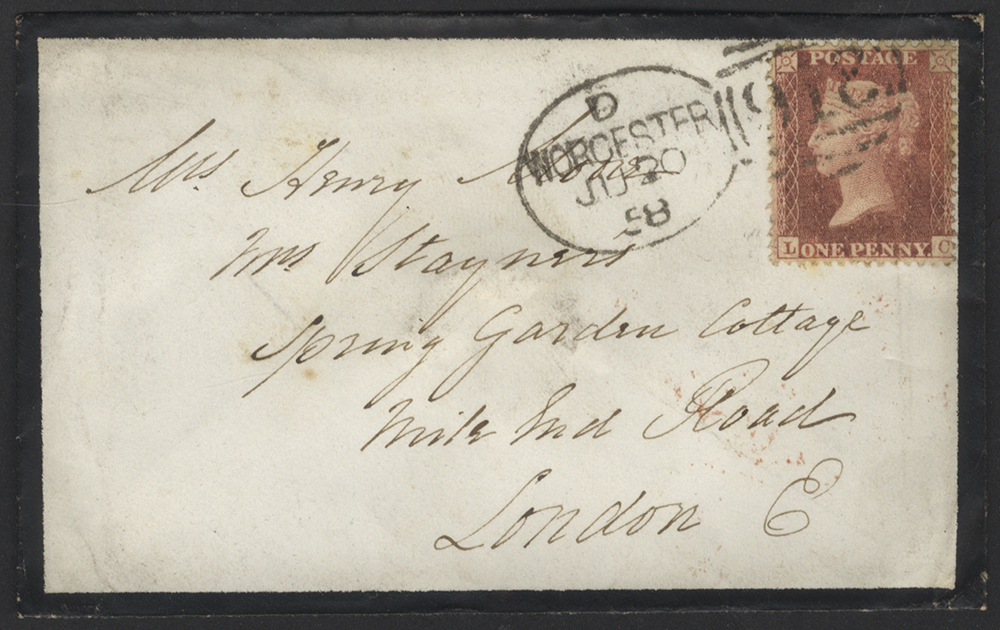 D
WORCESTER
JU 20
58
POSTAGE
L ONE PENNY. C
Mrs Henry
Mrs Stayners
Spring Garden Cottage
Mile End Road
London E